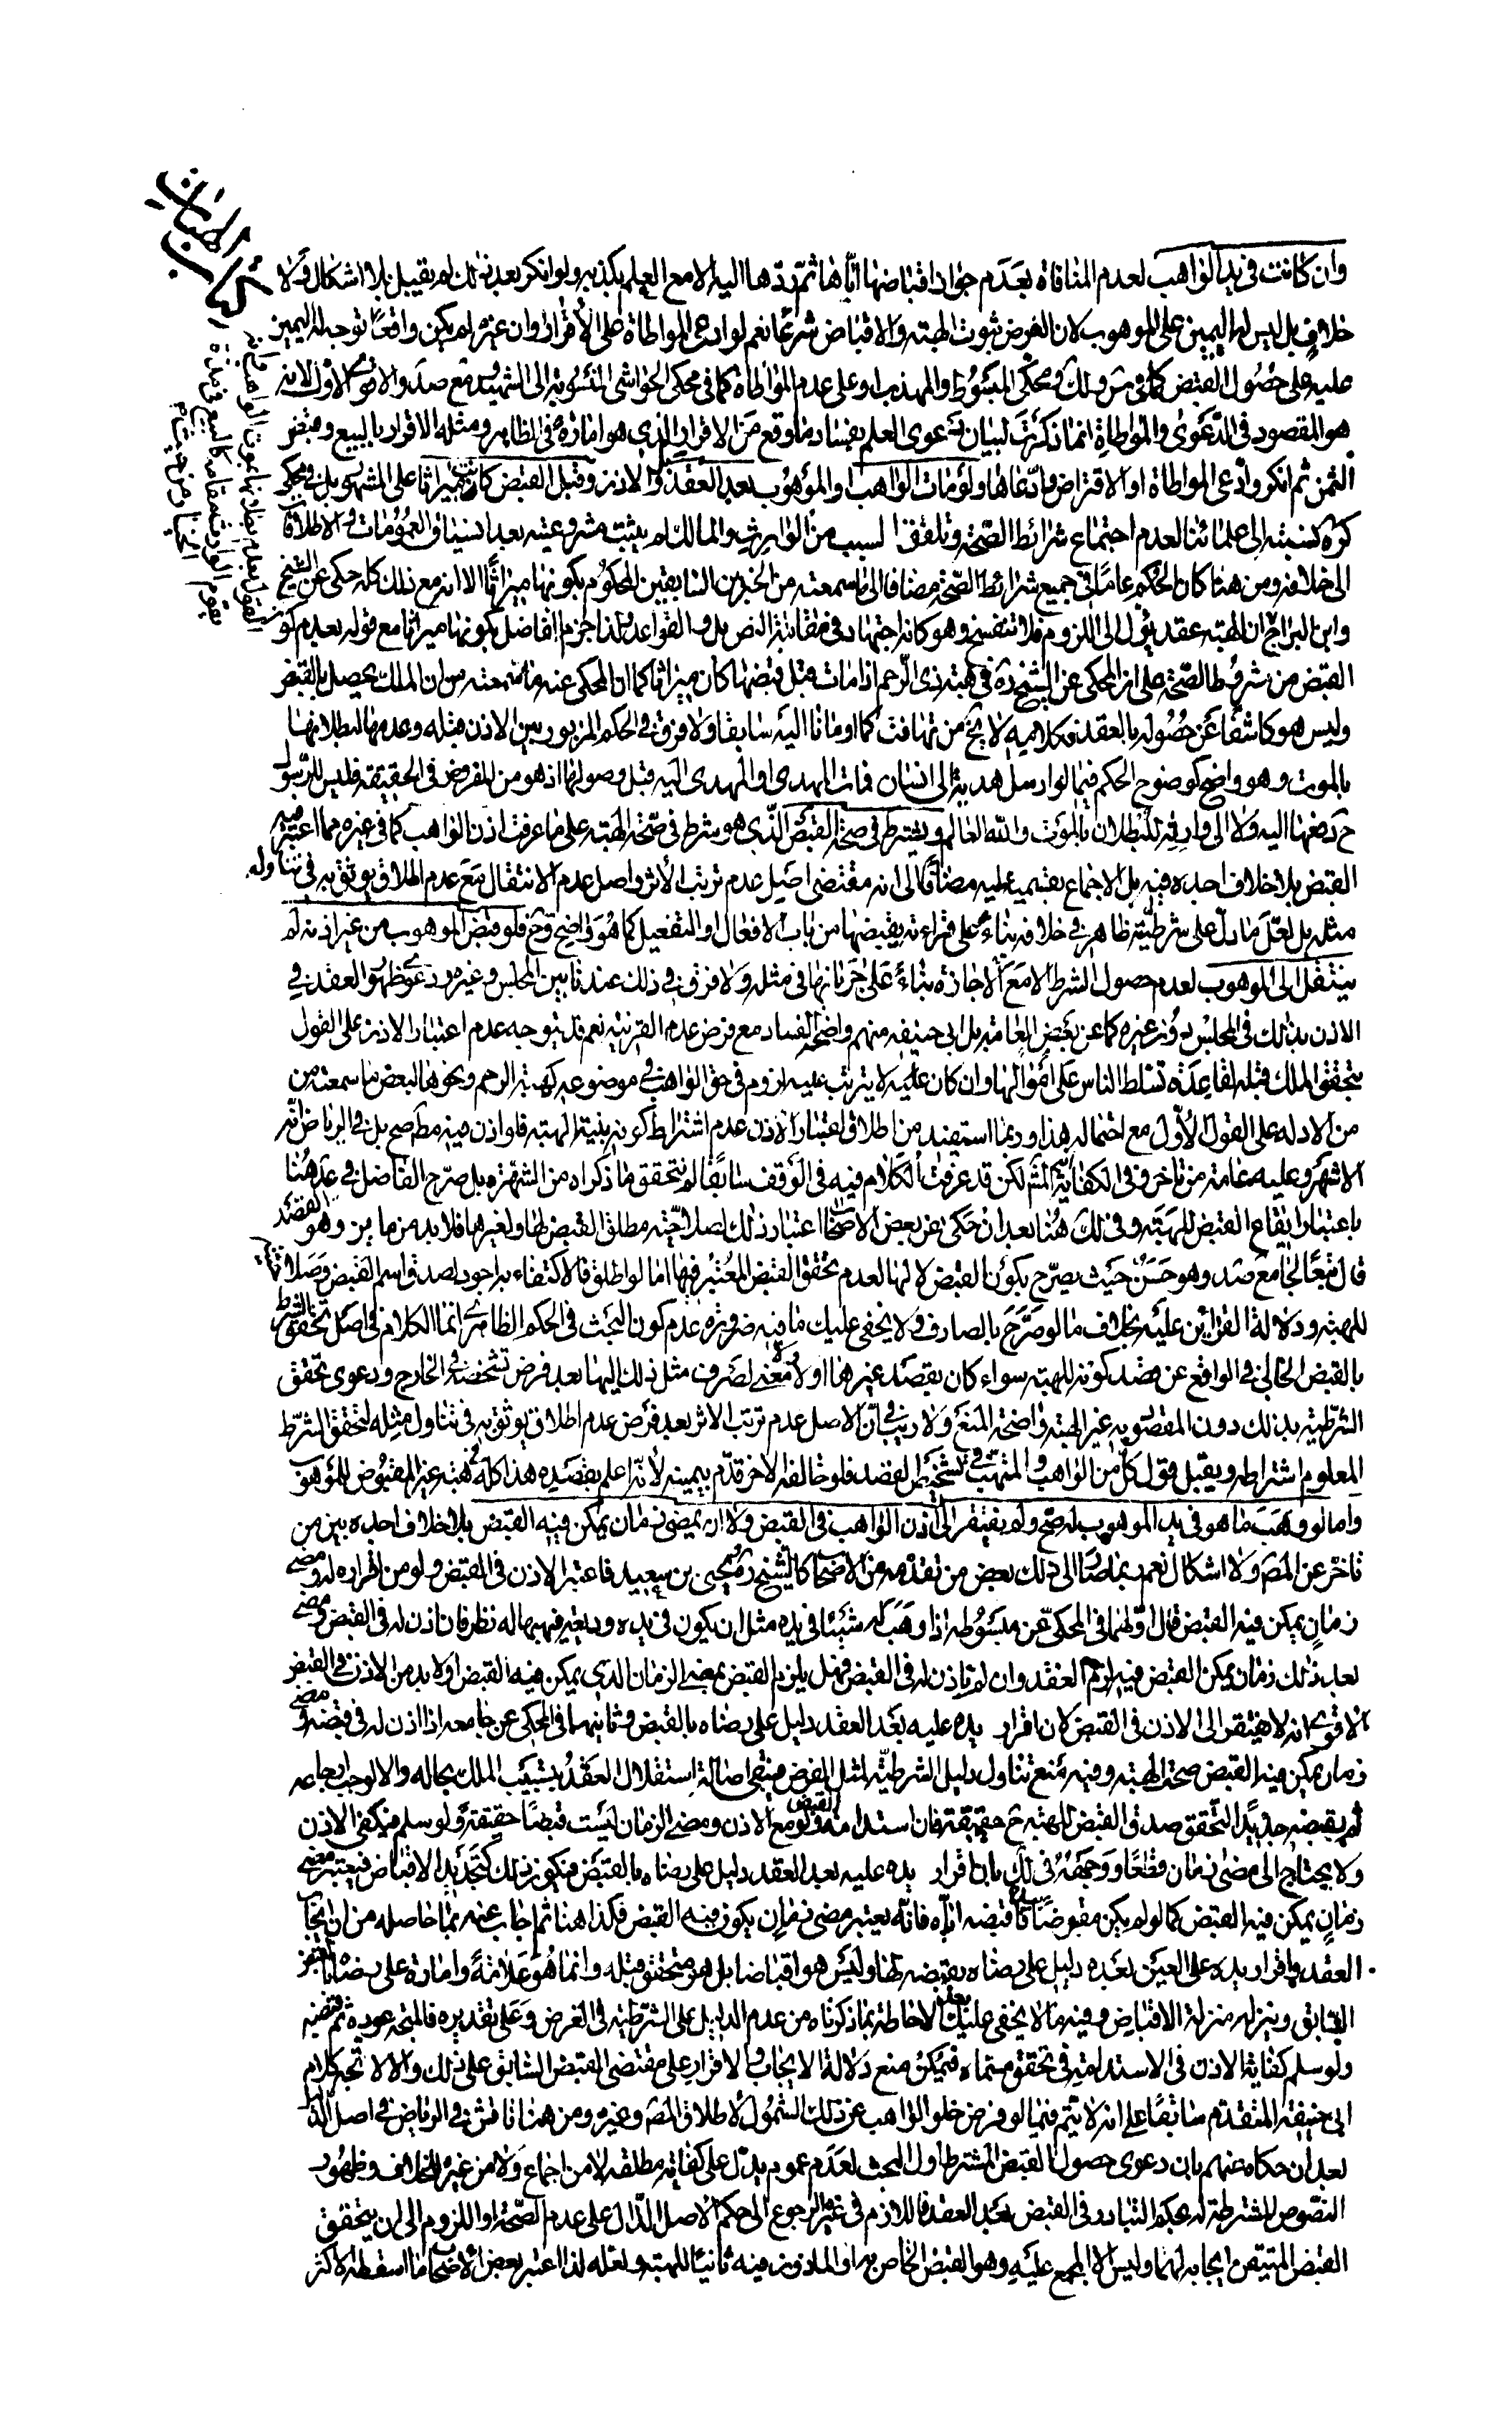 كتاب الهبات
وان كانت في يد الواهب لعدم المنافاة بعدم جواز اقباضها اياها ثم ردها اليه الا مع العلم بكذبه ولو انكر بعد ذلك لم يقبل بلا اشكال ولا
خلاف بل ليس له اليمين على الموهوب لان الفرض ثبوت الهبة والاقباض شرعا نعم لو ادعى المواطاة على الاقرار وان غيره لم يكن واقعا توجه له اليمين
عليه على حصول القبض كما في وعلى عدم المواطاة كما في محكى الحواشي المنسوبة الى الشهيد مع صدو الاقوى الاول لانه
هو المقصود في الدعوى والمواطاة انما ذكرت لبيان دعوى العلم بفساد ما وقع من الاقرار الذي هو امارة في الظاهر ومثله الاقرار بالبيع وقبض
الثمن ثم انكر وادعى المواطاة او الاقتراض وادعاها ولو مات الواهب او الموهوب بعد العقد والاذن وقبل القبض كانت ميراثا على المشهور بل في محكى
كره نسبته الى علمائنا لعدم اجتماع شرائط الصحة وتلفق السبب من الوارث والمالك لم يثبت مشروعيته بعد انسياق العمومات والاطلاقات
الى خلافه ومن هنا كان الحكم عاما في جميع شرائط الصحة مضافا الى ما سمعته من الخبرين السابقين المحكوم بكونها ميراثا الا انه مع ذلك كله حكى عن الشيخ
وابن البراج ان الهبة عقد يؤل الى اللزوم فلا تنفسخ وهو كانه اجتهاد في مقابلة النص بل والقواعد ولذا جزم الفاضل بكونها ميراثا مع قوله بعدم كون
القبض من شروط الصحة على ان المحكى عن الشيخ ره في هبة ذي الرحم اذا مات قبل قبضها كان ميراثا كما ان المحكى عنه ما سمعته من ان الملك يحصل بالقبض
وليس هو كاشفا عن حصوله بالعقد فكلاميه لا يخ من تهافت كما اومانا اليه سابقا ولا فرق في الحكم المزبور بين الاذن قبله وعدمها لبطلانها
بالموت وهو واضح كوضوح الحكم فيما لو ارسل هدية الى انسان فمات المهدى او المهدى اليه قبل وصولها اذ هو من المفروض في الحقيقة فليس للرسول
ح دفعها اليه ولا الى وارثه للبطلان بالموت والله العالم ويشترط في صحة القبض الذي هو شرط في صحة الهبة على ما عرفت اذن الواهب كما في غيره مما اعتبر فيه
القبض بلا خلاف اجده فيه بل الاجماع بقسميه عليه مضافا الى انه مقتضى اصل عدم ترتب الاثر واصل عدم الانتقال مع عدم اطلاق يوثق به في تناوله
مثله بل لعل ما دل على شرطيته ظاهر في خلافه بناء على قراءته يقبضها من باب الافعال او التفعيل كما هو واضح وح فلو قبض الموهوب من غير اذنه لم
ينتقل الى الموهوب لعدم حصول الشرط الا مع الاجازة بناء على جريانها في مثله ولا فرق في ذلك عندنا بين المجلس وغيره ودعوى ظهور العقد في
الاذن بذلك في المجلس دون غيره كما عن بعض العامة بل ابي حنيفه منهم واضحة الفساد مع فرض عدم القرينة نعم قد يتوجه عدم اعتبار الاذن على القول
بتحقق الملك قبله لقاعدة تسلط الناس على اموالها وان كان عليه لا يترتب عليه لزوم في حق الواهب في موضوعه كهبة الرحم ونحوها لبعض ما سمعته من
من الادله على القول الاول مع احتماله هذا وربما استفيد من اطلاق اعتبار الاذن عدم اشتراط كونه بنية الهبة فلو اذن فيه مط صح بل في الرياض انه
الاشهر وعليه عامة من تاخر وفي الكفاية انه المش لكن قد عرفت الكلام فيه في الوقف سابقا لم نتحقق ما ذكراه من الشهرة بل صرح الفاضل في عد هنا
باعتبار ايقاع القبض للهبة وفي لك هنا بعد ان حكى عن بعض الاصحاب اعتبار ذلك لصلاحية مطلق القبض لها ولغيرها فلا بد من مايز وهو القصد
قال تبعا لجامع صد وهو حسن حيث يصرح بكون القبض لا لها لعدم تحقق القبض المعتبر فيها اما لو اطلق فالاكتفاء به اجود لصدق اسم القبض وصلاحيته
للهبة ودلالة القرائن عليه بخلاف ما لو صرح بالصارف ولا يخفى عليك ما فيه ضرورة عدم كون البحث في الحكم الظاهري انما الكلام في اصل تحقق الشرط
بالقبض الخالي في الواقع عن قصد كونه للهبة سواء كان بقصد غيرها او لا ولا معنى لصرف مثل ذلك اليها بعد فرض تشخصه في الخارج ودعوى تحقق
الشرطية بذلك دون المقصود به غير الهبة واضحة المنع ولا ريب في ان الاصل عدم ترتب الاثر بعد فرض عدم اطلاق يوثق به في تناول مثله لتحقق الشرط
المعلوم اشتراطه ويقبل قول كل من الواهب والمتهب في تشخيص القصد فلو خالفه الاخر قدم بيمينه لانه اعلم بقصده هذا كله في هبة غير المقبوض للموهوب
واما لو وهب ما هو في يد الموهوب له صح ولم يفتقر الى اذن الواهب في القبض ولا ان يمضي زمان يمكن فيه القبض بلا خلاف اجده بين من
تاخر عن المص ولا اشكال نعم ربما صار الى ذلك بعض من تقدمه من الاصحاب كالشيخ ره ويحيى بن سعيد فاعتبر الاذن في القبض ولو من اقراره له ومضى
زمان يمكن فيه القبض قال اولهما في المحكى عن مبسوطه اذا وهب له شيئا في يده مثل ان يكون في يده وديعة فيهبها له نظر فان اذن له في القبض ومضى
بعد ذلك زمان يمكن القبض فيه لزم العقد وان لم ياذن له في القبض فهل يلزم القبض بمضى الزمان الذي يمكن فيه القبض او لا بد من الاذن في القبض
الاقوى انه لا يفتقر الى الاذن في القبض لان اقرار يده عليه بعد العقد دليل على رضاه بالقبض وثانيهما في المحكى عن جامعه اذا اذن له في قبضه ومضى
زمان يمكن فيه القبض صحت الهبة وفيه منع تناول دليل الشرطية لمثل الفرض فيبقى اصالة استقلال العقد بتسبيب الملك بحاله والا لوجب ارجاعه
ثم يقبضه جديدا لتحقق صدق القبض للهبة ح حقيقة فان استدامة القبض ولو مع الاذن ومضى الزمان ليست قبضا حقيقة ولو سلم فيكفى الاذن
ولا يحتاج الى مضى زمان قطعا ووجهه في لك بان اقرار يده عليه بعد العقد دليل على رضاه بالقبض فيكون ذلك كتجديد الاقباض فيعتبر مضى
زمان يمكن فيه القبض كما لو لم يكن مقبوضا فاقبضه اياه فانه يعتبر مضى زمان يكون فيه القبض فكذا هنا ثم اجاب عنه بما حاصله من ان ايجاب
العقد واقرار يده على العين بعده دليل على رضاه بقبضه لها وليس هو اقباضا بل هو متحقق قبله وانما هو علامة وامارة على رضاه بالقبض
السابق وينزله منزلة الاقباض وفيه ما لا يخفى عليك بعد الاحاطة بما ذكرناه من عدم الدليل على الشرطية في الفرض وعلى تقديره فالمتجه عوده ثم قبضه
ولو سلم كفاية الاذن في الاستدامة في تحقق مسماه فيمكن منع دلالة الايجاب والاقرار على مقتضى القبض السابق على ذلك والا لاتجه كلام
ابي حنيفه المتقدم سابقا على انه لا يتم فيما لو فرض خلو الواهب عن ذلك الشمول لاطلاق المص وغيره ومن هنا ناقش في الرياض في اصل الحكم
بعد ان حكاه عنهم بان دعوى حصول القبض المشترط اول البحث لعدم عموم يدل على كفايته مطلقه لا من اجماع ولا من غيره للخلاف وظهور
النصوص المشترطة له بحكم التبادر في القبض بعد العقد فاللازم في غيره الرجوع الى حكم الاصل الدال على عدم الصحة او اللزوم الى ان يتحقق
القبض المتيقن ايجابه لهما وليس الا المجمع عليه وهو القبض الخاص به او الماذون فيه ثانيا للهبة ولعله لذا اعتبر بعض الاصحاب ما اسقطه الاكثر